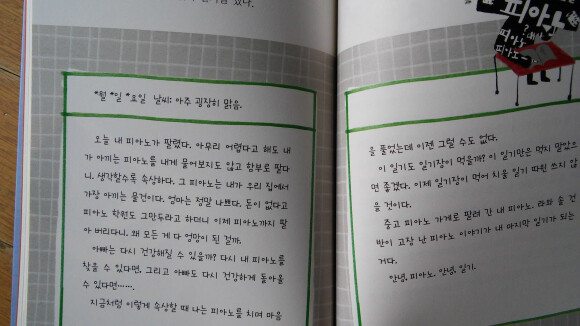 *월 *일 *요일 날씨: 아주 굉장히 맑음.
오늘 내 피아노가 팔렸다. 아무리 어렵다고 해도 내
가 아끼는 피아노를 내게 물어보지도 않고 함부로 팔다
니. 생각할수록 속상하다. 그 피아노는 내가 우리 집에서
가장 아끼는 물건이다. 엄마는 정말 나쁘다. 돈이 없다고
피아노 학원도 그만두라고 하더니 이제 피아노까지 팔
아 버리다니. 왜 모든 게 다 엉망이 된 걸까.
아빠는 다시 건강해질 수 있을까? 다시 내 피아노를
찾을 수 있다면, 그리고 아빠도 다시 건강하게 돌아올
수 있다면……
지금처럼 이렇게 속상할 때 나는 피아노를 치며 마음
피아노
피아노
을 풀었는데 이젠 그럴 수도 없다.
이 일기도 일기장이 먹을까? 이 일기만은 먹지 말았으
면 좋겠다. 이제 일기장이 먹어 치울 일기 따윈 쓰지 않
을 것이다.
중고 피아노 가게로 팔려 간 내 피아노. 라와 솔 건
반이 고장 난 피아노 이야기가 내 마지막 일기가 되는
거다.
안녕, 피아노. 안녕, 일기.